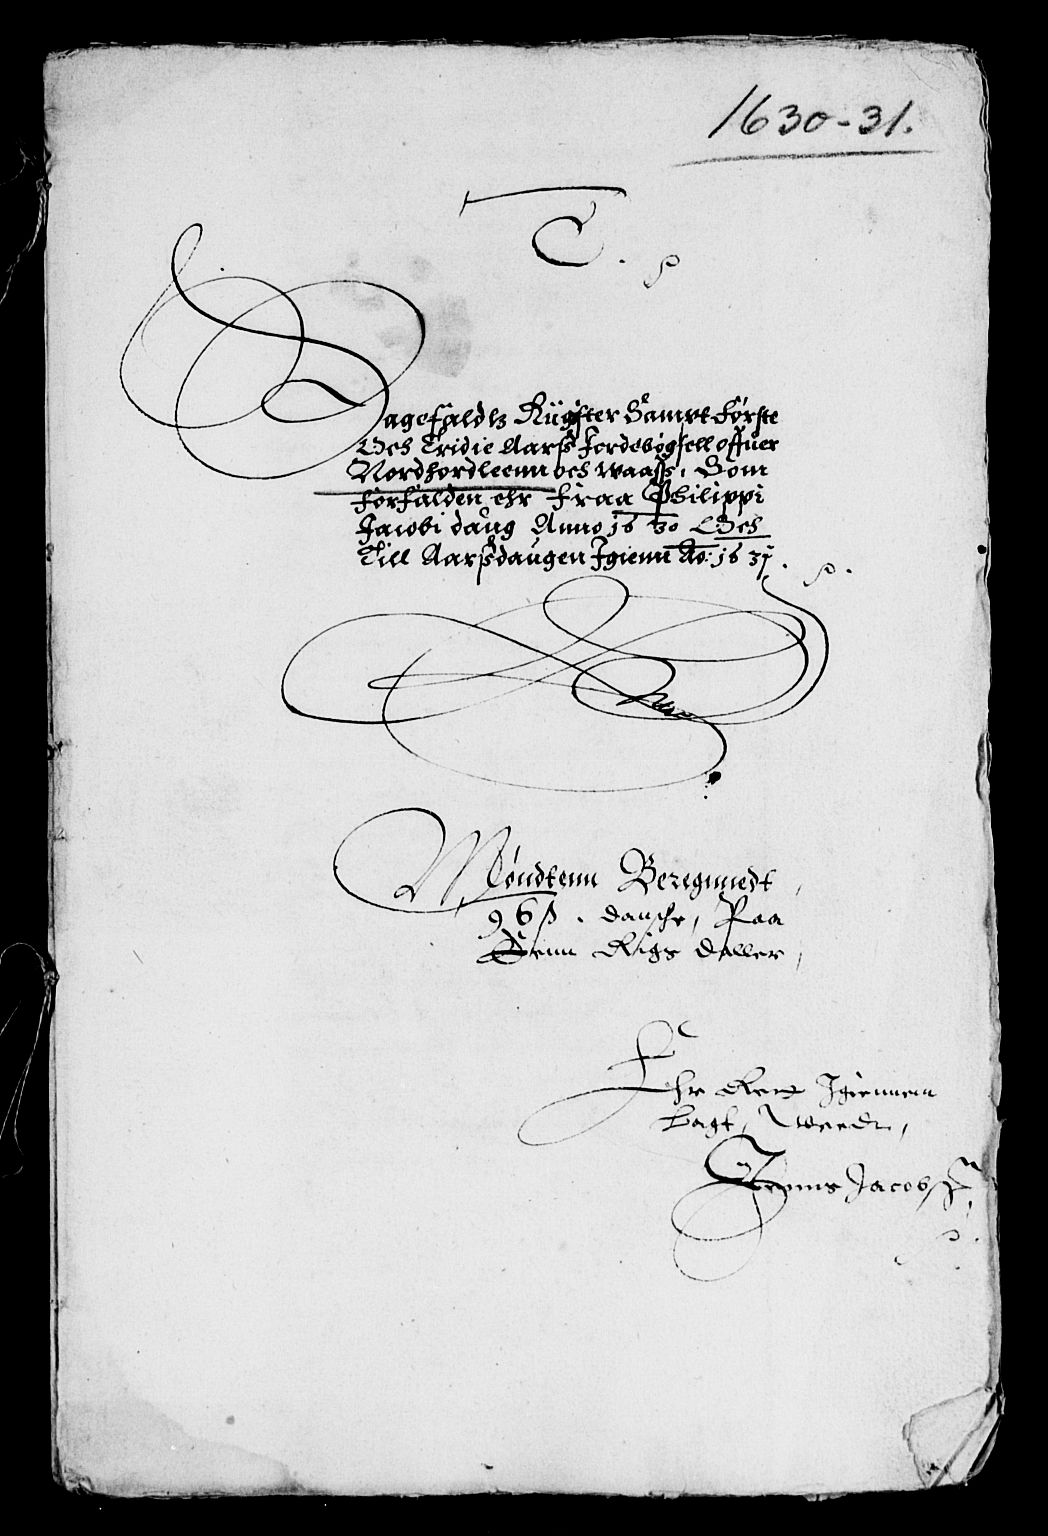 1630-31.
C.
Sagefaldh Rügster Sampt Første
Och Tridie Aarß Jordebøgsell offuer
Nordhordleenn och Waass, Som
forfalden ehr Fraa Philippi
Jacobi daug Anno 1630 Och
Till Aarßdaugen Igienn Ao: 1631.
Møndtenn Beregnnedt,
96 ß. dansche, Paa
Enn Rigs daller,
Ehr Rett Igiennem
Lagt,
Jenns Jacobß